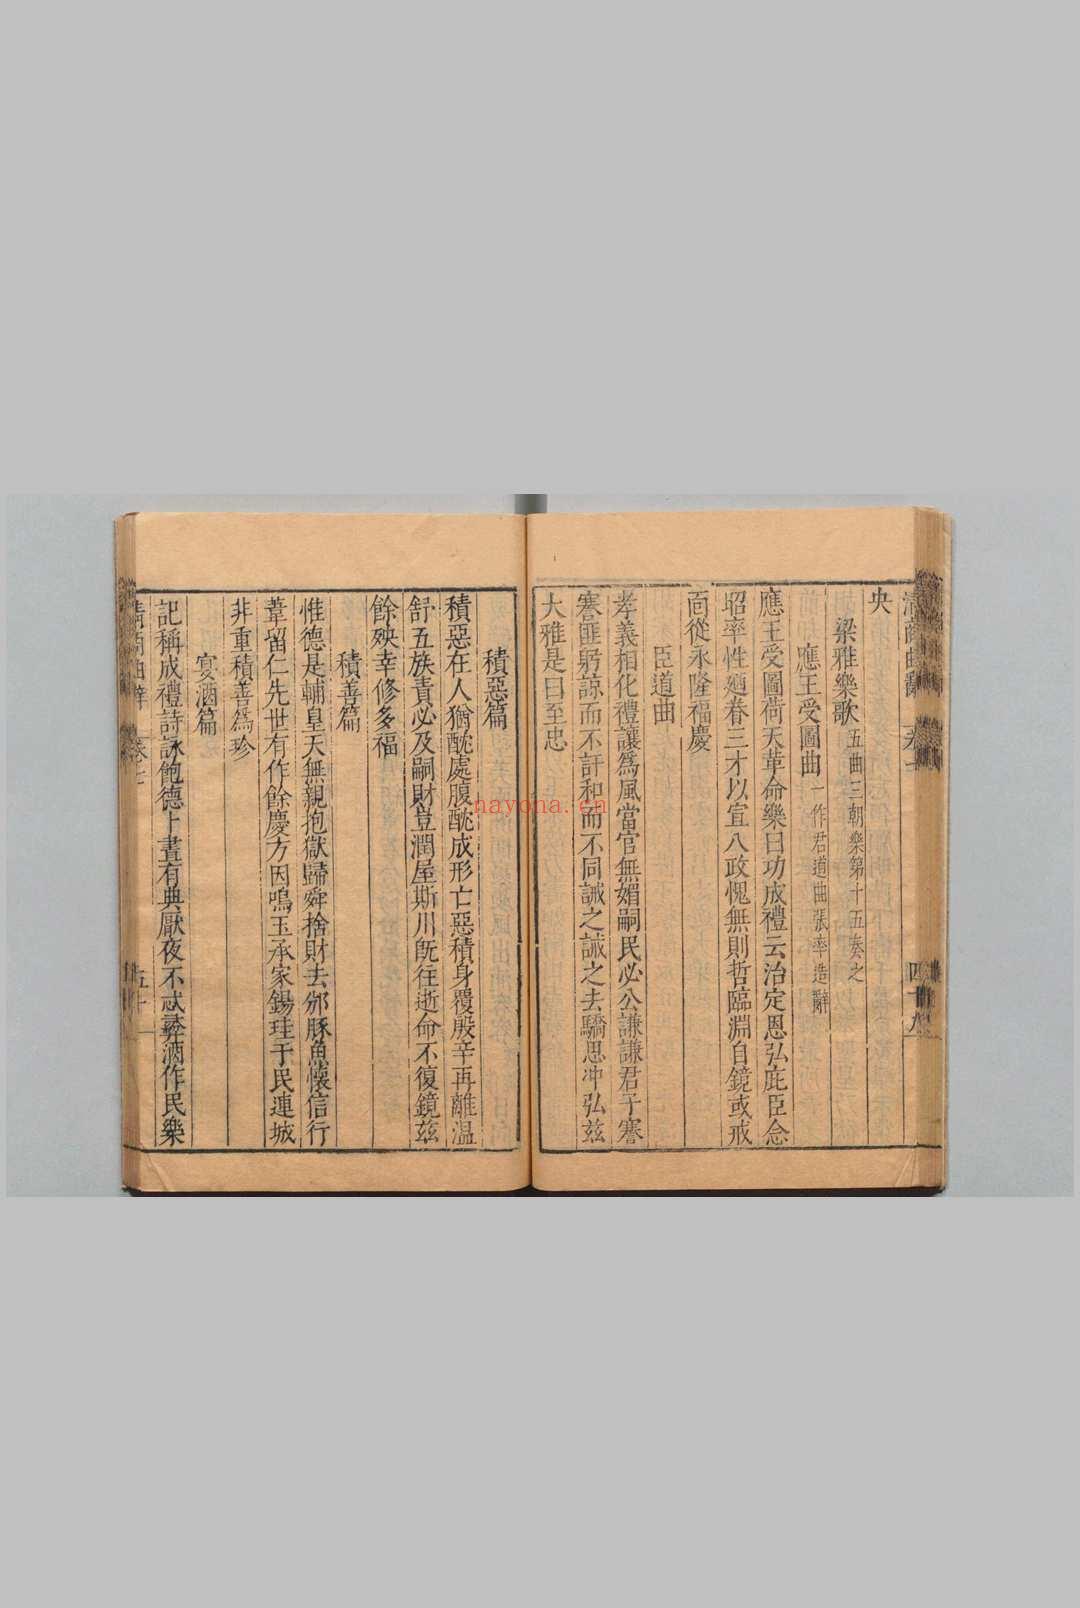 清商曲辭 卷七 四十九
央
梁雅樂歌 五曲三朝樂第十五奏之
應王受圖曲 一作君道曲張率造辭
應王受圖荷天革命樂曰功成禮云治定恩弘庇臣念
昭率性廼眷三才以宣八政愧無則哲臨淵自鏡或戒
面從永隆福慶
臣道曲
孝義相化禮讓為風當官無媚嗣民必公謙謙君子謇
謇匪躬諒而不訐和而不同誡之誡之去驕思沖弘茲
大雅是曰至忠
積惡篇
積惡在人猶酖處腹酖成形亡惡積身覆殷辛再離温
舒五族責必及嗣財豈潤屋斯川旣往逝命不復鏡兹
餘殃幸修多福
積善篇
惟德是輔皇天無親抱獄歸舜捨財去邠豚魚懷信行
葦留仁先世有作餘慶方因鳴玉承家錫珪于民連城
非重積善爲珍
宴酒篇
記稱成禮詩詠飽德卜晝有典厭夜不忒彞酒作民樂
清商曲辭 卷七 五十
nayona.cn